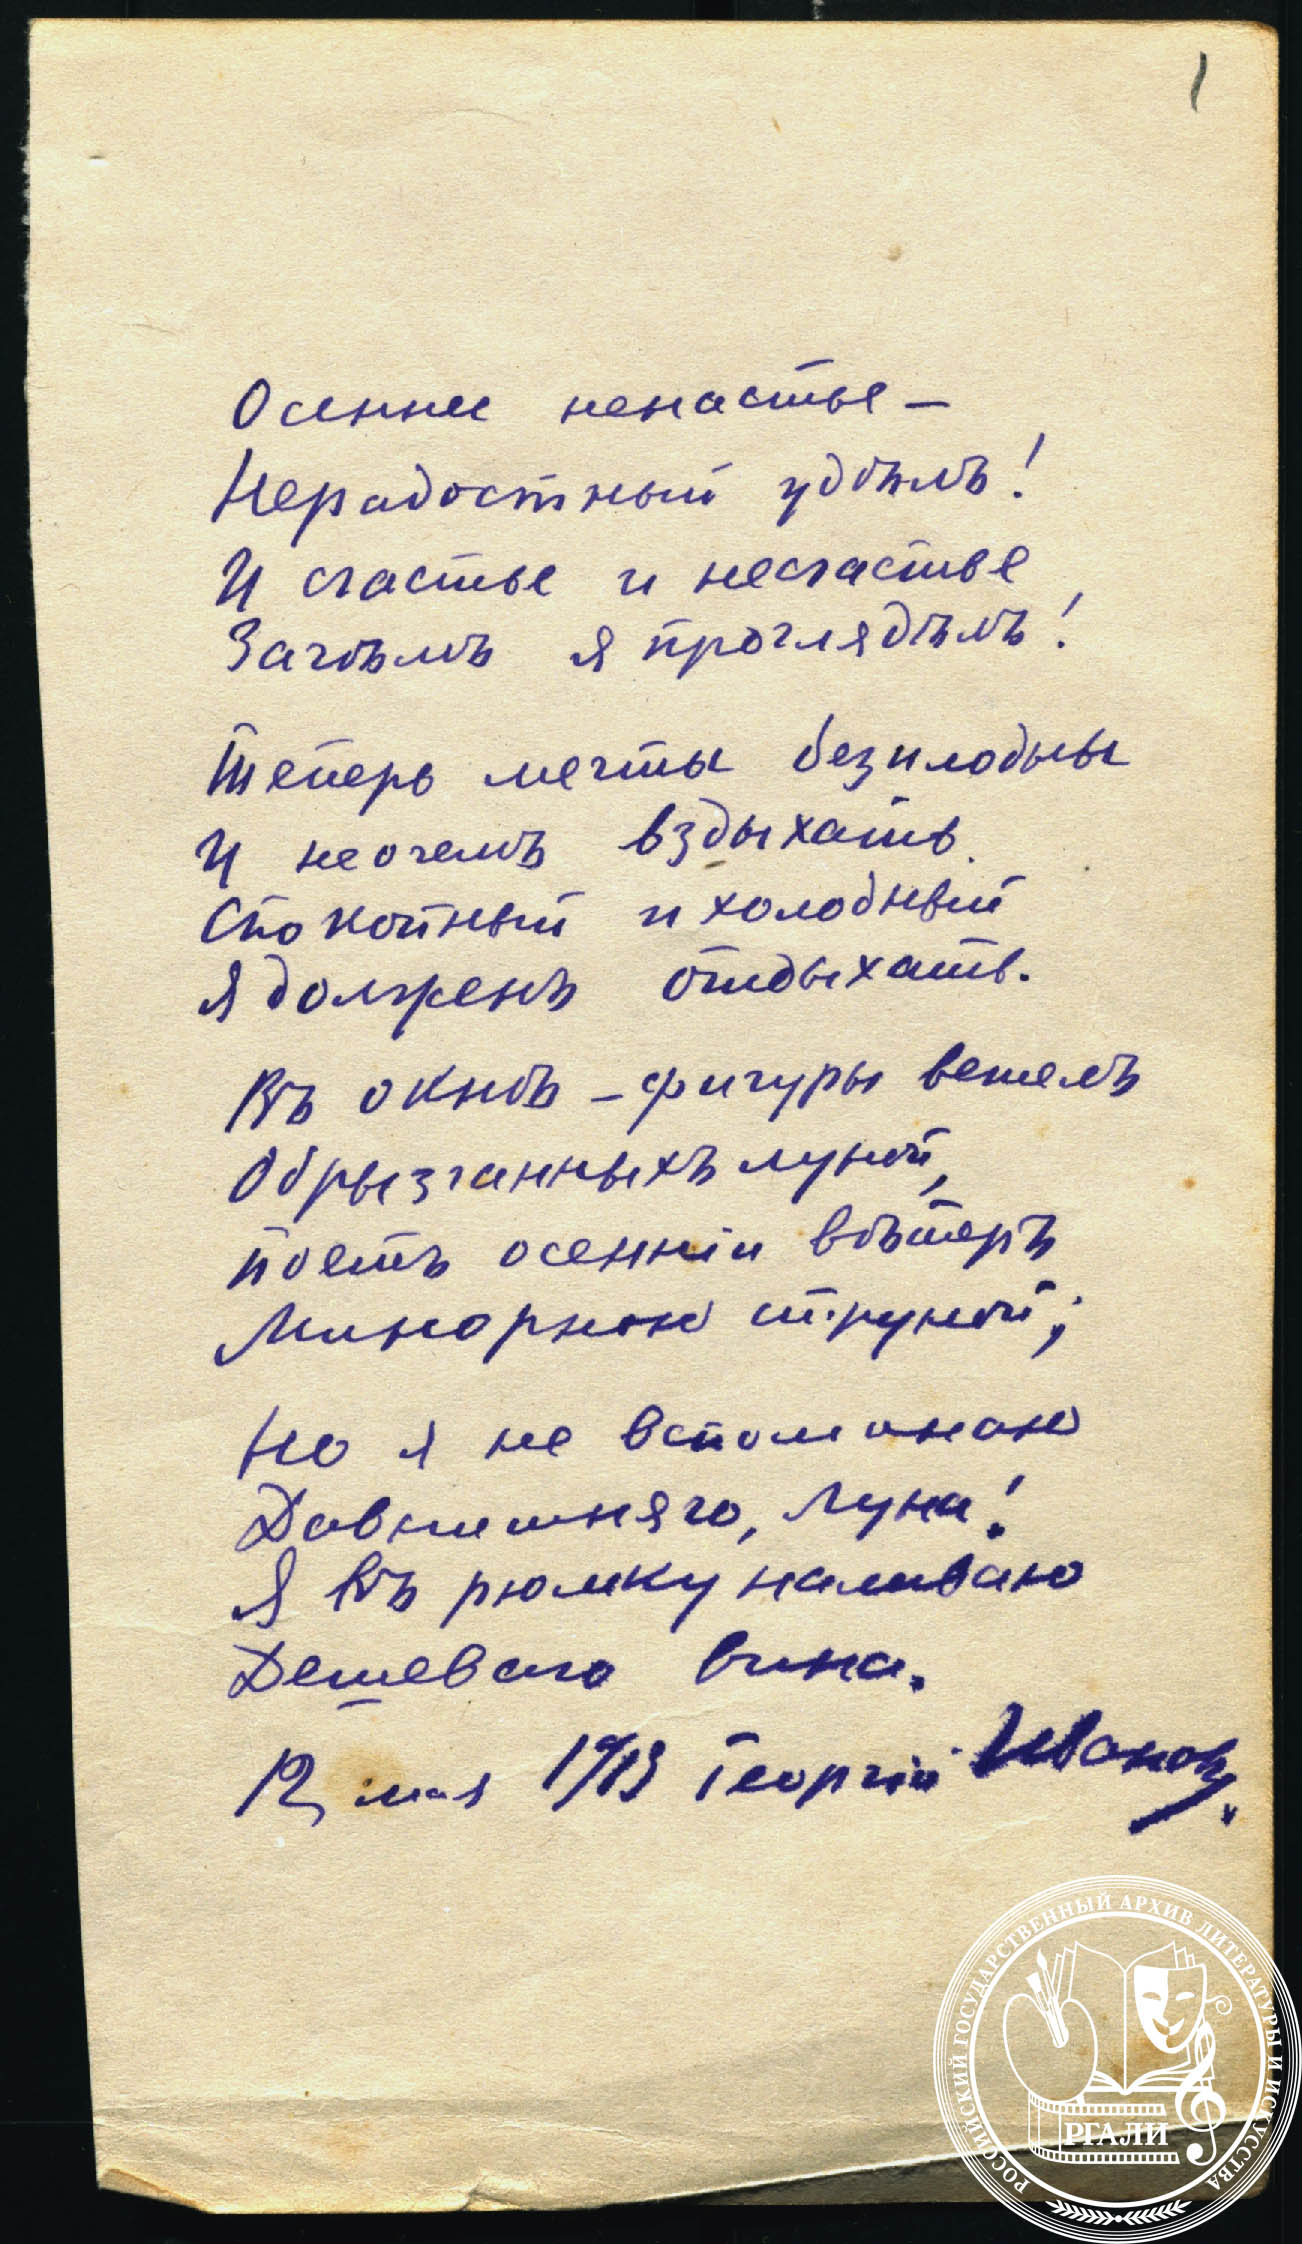 1
Осеннее ненастье –
Нерадостный удѣлъ!
И счастье и несчастье
Зачѣмъ я проглядѣлъ!
Теперь мечты безплодны
И неочемъ вздыхать.
Спокойный и холодный
Я долженъ отдыхать.
Въ окнѣ – фигуры ветелъ
Обрызганныхъ луной,
Поетъ осеннiй вѣтеръ
Минорною струной;
Но я не вспоминаю
Давнишняго, луна!
Я въ рюмку наливаю
Дешеваго вина.
12 мая 1913 Георгiй Ивановъ.
РОССИЙСКИЙ ГОСУДАРСТВЕННЫЙ АРХИВ ЛИТЕРАТУРЫ И ИСКУССТВА
РГАЛИ